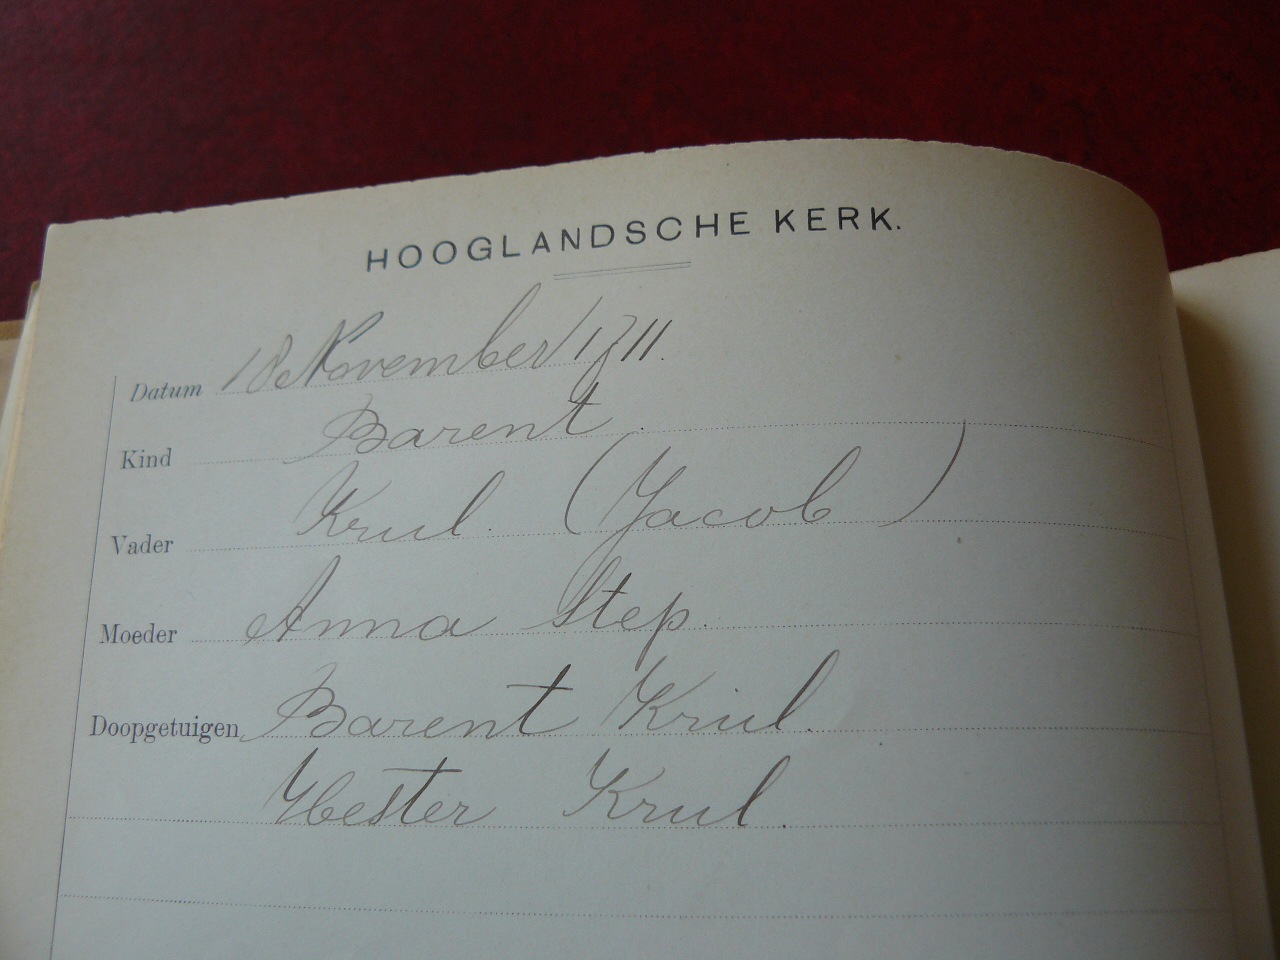 HOOGLANDSCHE KERK.
Datum 18 November 1711.
Kind Barent.
Vader Krul. (Jacob)
Moeder Anna Step.
Doopgetuigen Barent Krul.
Hester Krul.